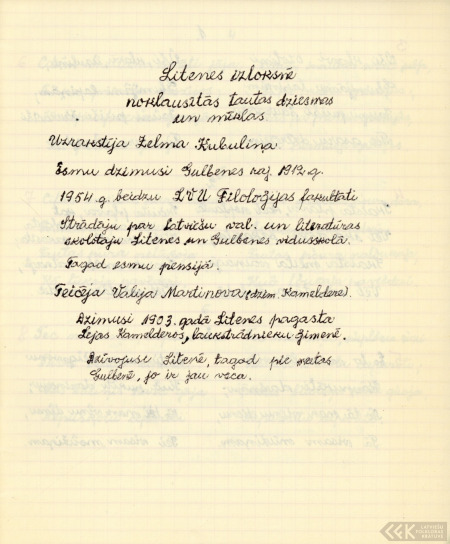 Litenes izloksnē
noklausītās tautas dziesmas
un mīklas
Uzrakstīja Zelma Kubuliņa.
Esmu dzimusi Gulbenes raj. 1912. g.
1954. g. beidzu LVU Filoloģijas fakultāti
Strādāju par latviešu val. un literatūras
skolotāju Litenes un Gulbenes vidusskolā.
Tagad esmu pensijā.
Teicēja Valija Martinova (dzim. Kameldere).
Dzimusi 1903. gadā Litenes pagasta
Lejas Kamelderos, laukstrādnieku ģimenē.
Dzīvojusi Litenē, tagad pie meitas
Gulbenē, jo ir jau veca.
LATVIEŠU
FOLKLORAS
KRĀTUVE